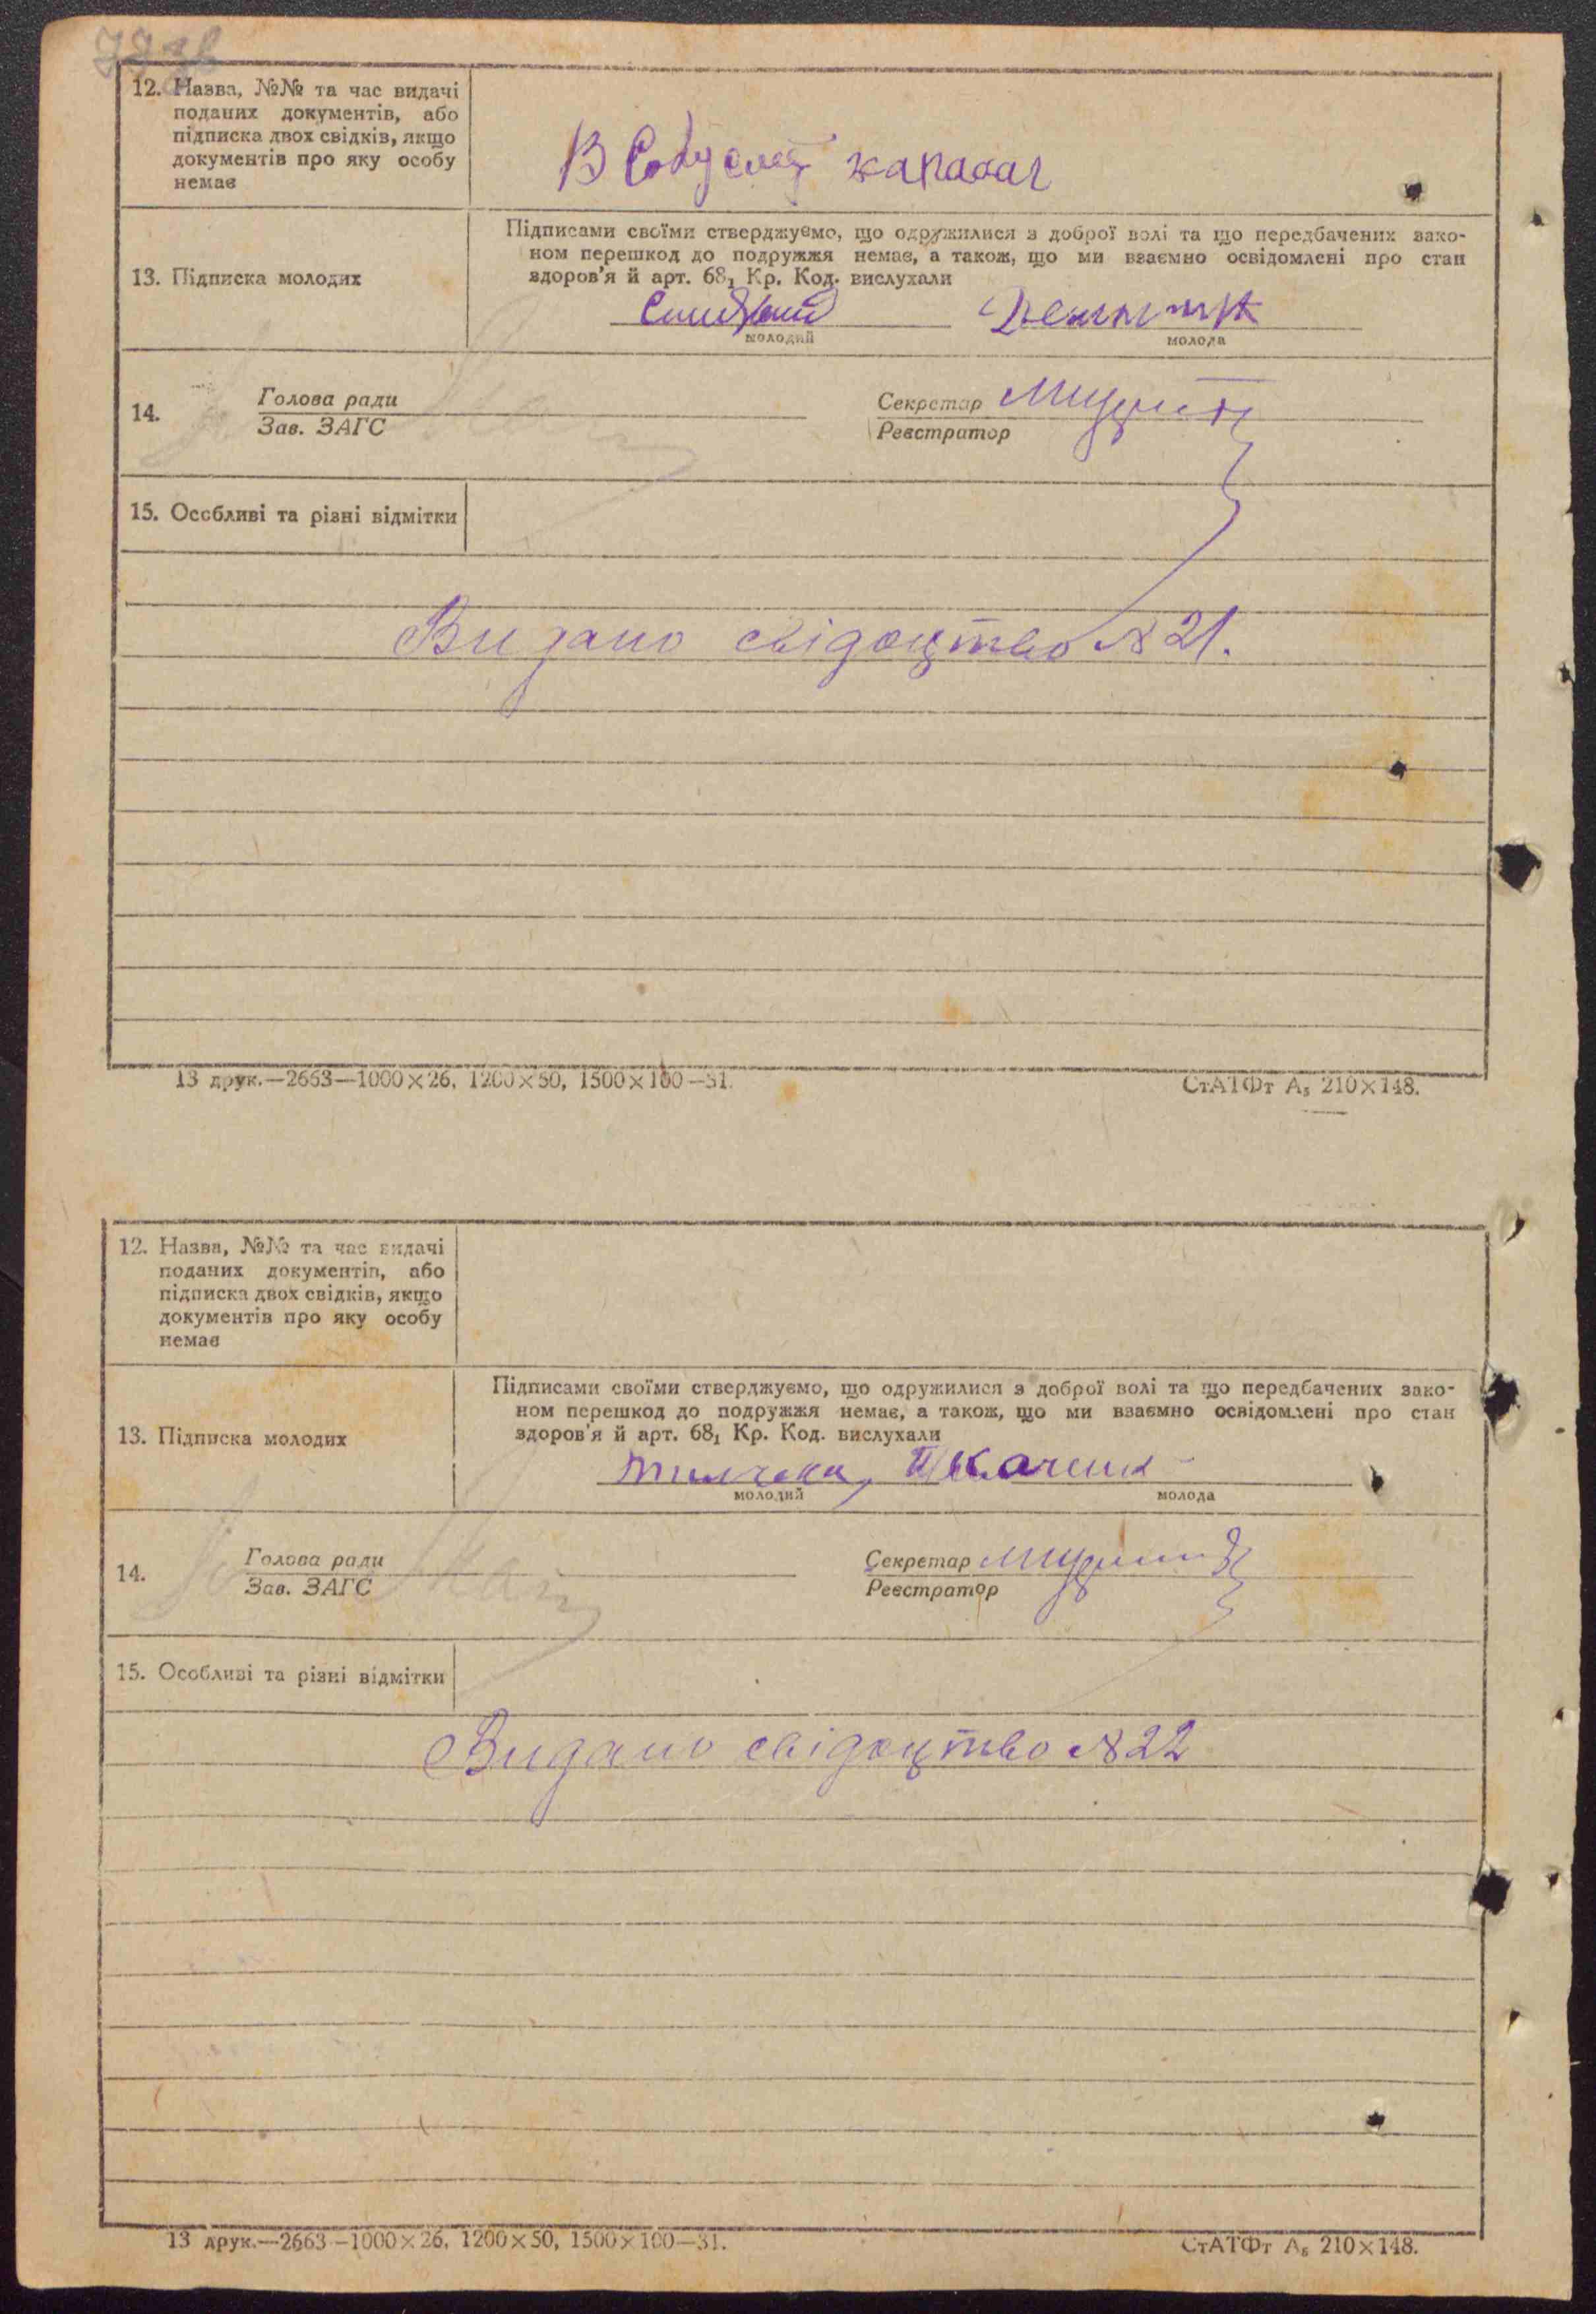 12. Назва, №№ та час видачі
поданих документів, або
підписка двох свідків, якщо
документів про яку особу
немає
В
13. Підписка молодих
Підписами своїми стверджуємо, що одружилися з доброї волі та що передбачених зако-
ном перешкод до подружжя немає, а також, що ми взаємно освідомлені про стан
здоров'я й арт. 68₁ Кр. Код. вислухали
молодий молода
14. Голова ради Секретар
Зав. ЗАГС Реєстратор
15. Особливі та різні відмітки
Видано свідоцтво №21.
13 друк.—2663—1000×26, 1200×50, 1500×100—31.
СтАТФт А₅ 210×148.
12. Назва, №№ та час видачі
поданих документів, або
підписка двох свідків, якщо
документів про яку особу
немає
13. Підписка молодих
Підписами своїми стверджуємо, що одружилися з доброї волі та що передбачених зако-
ном перешкод до подружжя немає, а також, що ми взаємно освідомлені про стан
здоров'я й арт. 68₁ Кр. Код. вислухали
молодий молода
14. Голова ради Секретар
Зав. ЗАГС Реєстратор
15. Особливі та різні відмітки
Видано свідоцтво №22
13 друк.—2663—1000×26, 1200×50, 1500×100—31.
СтАТФт А₅ 210×148.